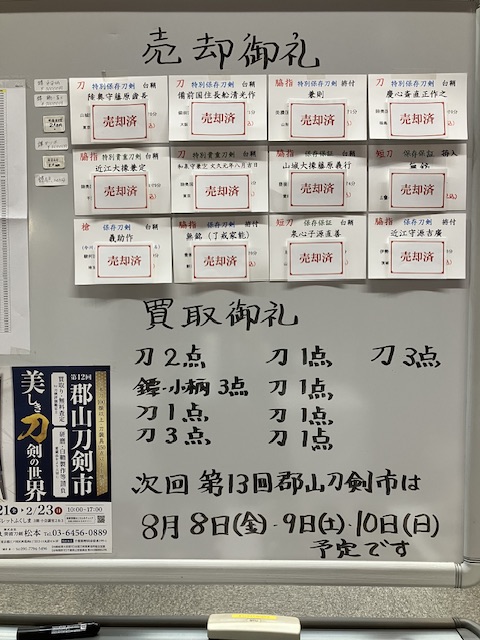 売却御礼
刀 特別保存刀剣 白鞘
陸奥守藤原
売却済
刀 特別保存刀剣 白鞘
備前国住長船清光作
売却済
脇指 特別保存刀剣 拵付
兼則
売却済
刀 特別保存刀剣 白鞘
慶心斎直正作之
売却済
脇指 特別貴重刀剣 白鞘
近江大掾兼定
売却済
刀 特別貴重刀剣 白鞘
和泉守兼定 文久元年八月吉日
売却済
脇指 保存保証 白鞘
山城大掾藤原義行
売却済
短刀 保存保証
売却済
槍 保存刀剣 白鞘
助作
売却済
脇指 保存刀剣 拵付
無銘(了戒家能)
売却済
短刀 保存保証 白鞘
泉心子源直善
売却済
脇指 保存刀剣 拵付
近江守源吉廣
売却済
買取御礼
刀2点 刀1点 刀3点
鐔・小柄3点 刀1点
刀1点 刀1点
刀3点 刀1点
次回 第13回郡山刀剣市は
8月8日(金)・9日(土)・10日(日)
予定です
第12回
郡山刀剣市
買取り・無料査定
研磨・白鞘製作等請負
美しき刀剣の世界
2/23
10:00-17:00
松本 Tel.03-6456-0889